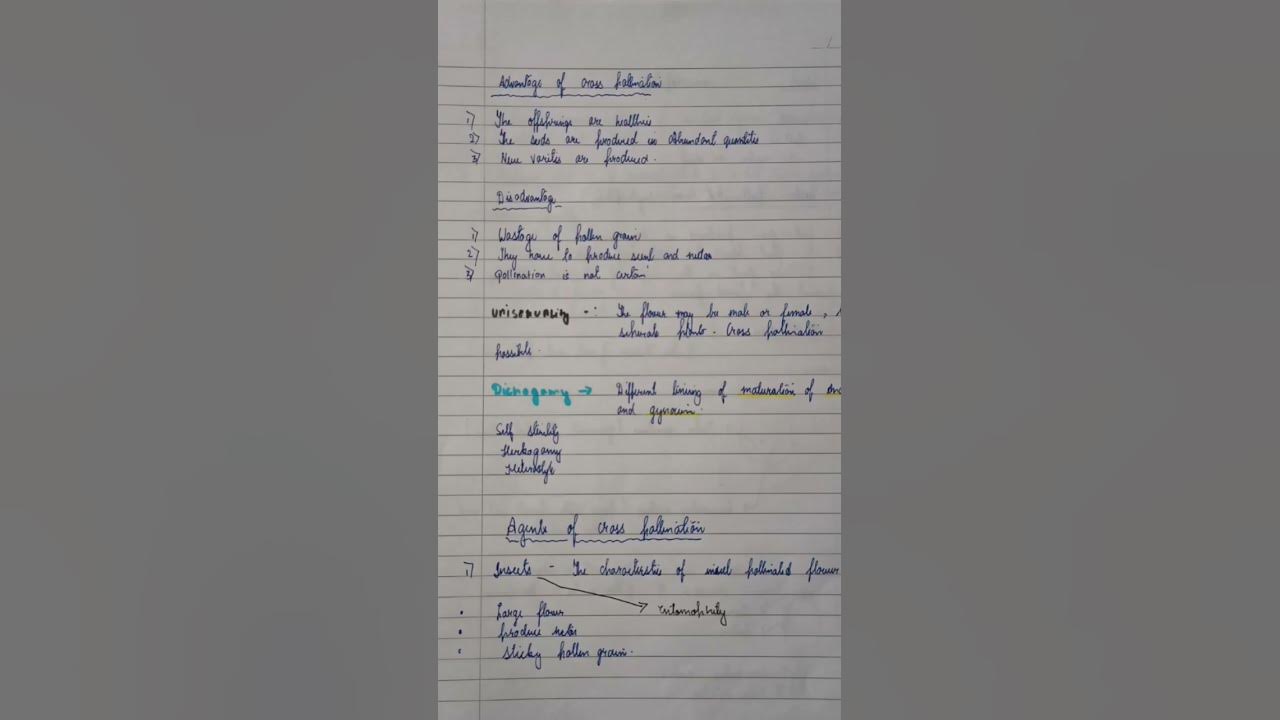 Advantage of cross pollination
1) The offsprings are healthier
2) The seeds are produced in abundant quantities
3) New varites are produced.
Disadvantage
1) Wastage of pollen grain
2) They have to produce scent and nectar
3) pollination is not certain
UNISEXUALITY -: The flower may be male or female,
seperate plants. Cross pollination
possible.
Dichogamy → Different timing of maturation of
and gynoecium.
Self sterility
Herkogamy
Heterostyle
Agents of cross pollination
1) Insects - The characterstic of insect pollinated flower
Entomophily
• Large flower
• produce nectar
• sticky pollen grain.